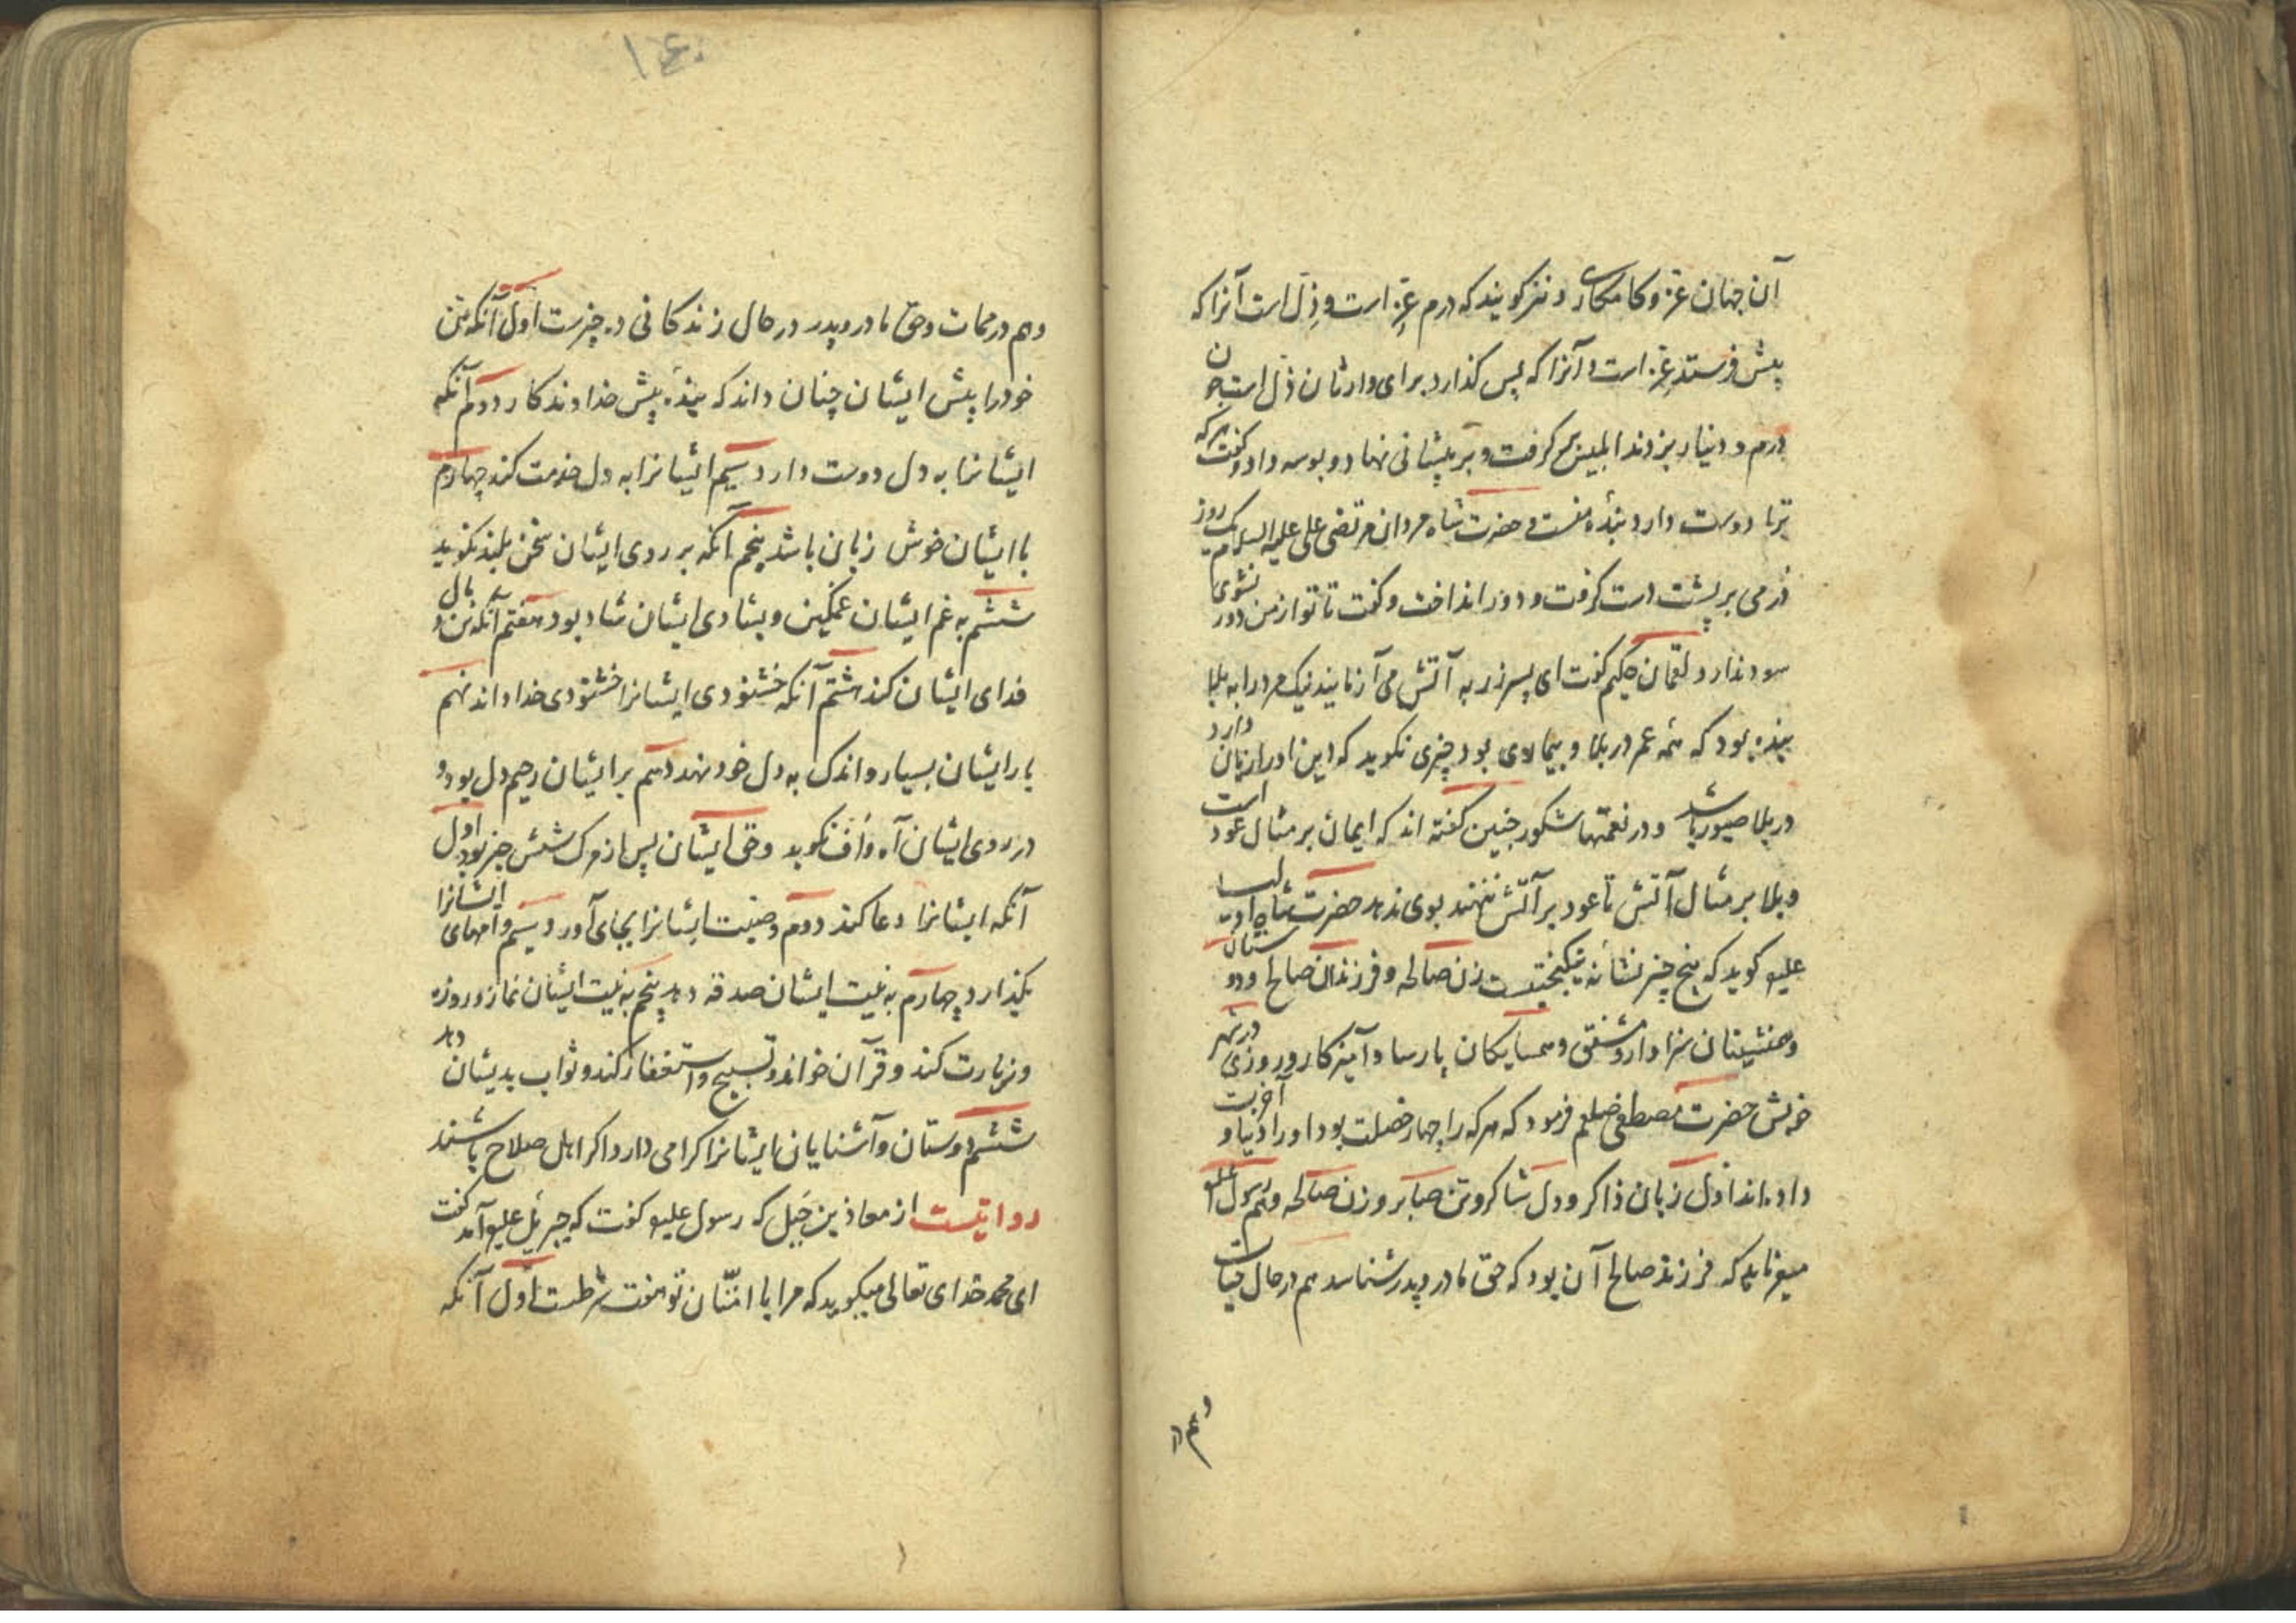 آن جهان عز و کامکاری و نیز کویند که درم عز است و ذل است آنرا که
پیش فرستد عز است و آنرا که پس کذارد برای وارثان ذل است جون
درم و دینار بزدند ابلیس بر کرفت و بر پیشانی نهاد و بوسه داد و کفت هرکه
ترا دوست دارد بندهٔ منست و حضرت شاه مردان مرتضی علی علیه السلام یک روز
درمی بر پشت دست کرفت و دور انداخت و کفت تا تو از من دور نشوی
سود ندارد لقمان حکیم کفت ای پسر زر به آتش می آزمایند نیک مرد را به بلا
بنده بود که همه عمر در بلا و بیماری بود چیزی نکوید که دین او را زیان دارد
در بلا صبور باشد و در نعمتها شکور جنین کفته اند که ایمان بر مثال عود است
و بلا بر مثال آتش تا عود بر آتش ننهند بوی ندهد حضرت شاه اولیا
علیه کوید که پنج چیز نشانه نیکبختیست زن صالحه و فرزندان صالح و دوستان
و همنشینان سزاوار و مشفق و همسایکان پارسا و آمیزکار و روزی در شهر
خویش حضرت مصطفی صلعم فرمود که هرکه را چهار خصلت بود او را دنیا و آخرت
داده اند اول زبان ذاکر و دل شاکر و تن صابر و زن صالحه و هم رسول علیه
میفرماید که فرزند صالح آن بود که حق مادر و پدر شناسد هم در حال حیات
و هم در
۱۶۰
و هم در ممات و حق مادر و پدر در حال زندکانی ده چیزست اول آنکه تن
خود را پیش ایشان چنان داند که بنده پیش خداوندکار دوم آنکه
ایشانرا به دل دوست دارد سیم ایشانرا به دل خدمت کند چهارم
با ایشان خوش زبان باشد پنجم آنکه بر روی ایشان سخن بلند نکوید
ششم به غم ایشان غمکین و بشادی ایشان شاد بود هفتم آنکه تن و مال
فدای ایشان کند هشتم آنکه خشنودی ایشانرا خشنودی خدا داند نهم
بار ایشان بسیار و اندک به دل خود نهد دهم بر ایشان رحیم دل بود و
در روی ایشان آه و اف نکوید و حق ایشان پس از مرک شش چیز بود اول
آنکه ایشانرا دعا کند دوم وصیت ایشانرا بجای آورد سیم وامهای ایشانرا
بکذارد چهارم به نیت ایشان صدقه دهد پنجم به نیت ایشان نماز و روزه
و زیارت کند و قرآن خواند و تسبیح و استغفار کند و ثواب بدیشان دهد
ششم دوستان و آشنایان ایشانرا کرامی دارد اکر اهل صلاح باشند
روایتست از معاذ بن جبل که رسول علیه کفت که جبریل علیه آمد کفت
ای محمد خدای تعالی میکوید که مرا با امتان تو هفت شرطست اول آنکه